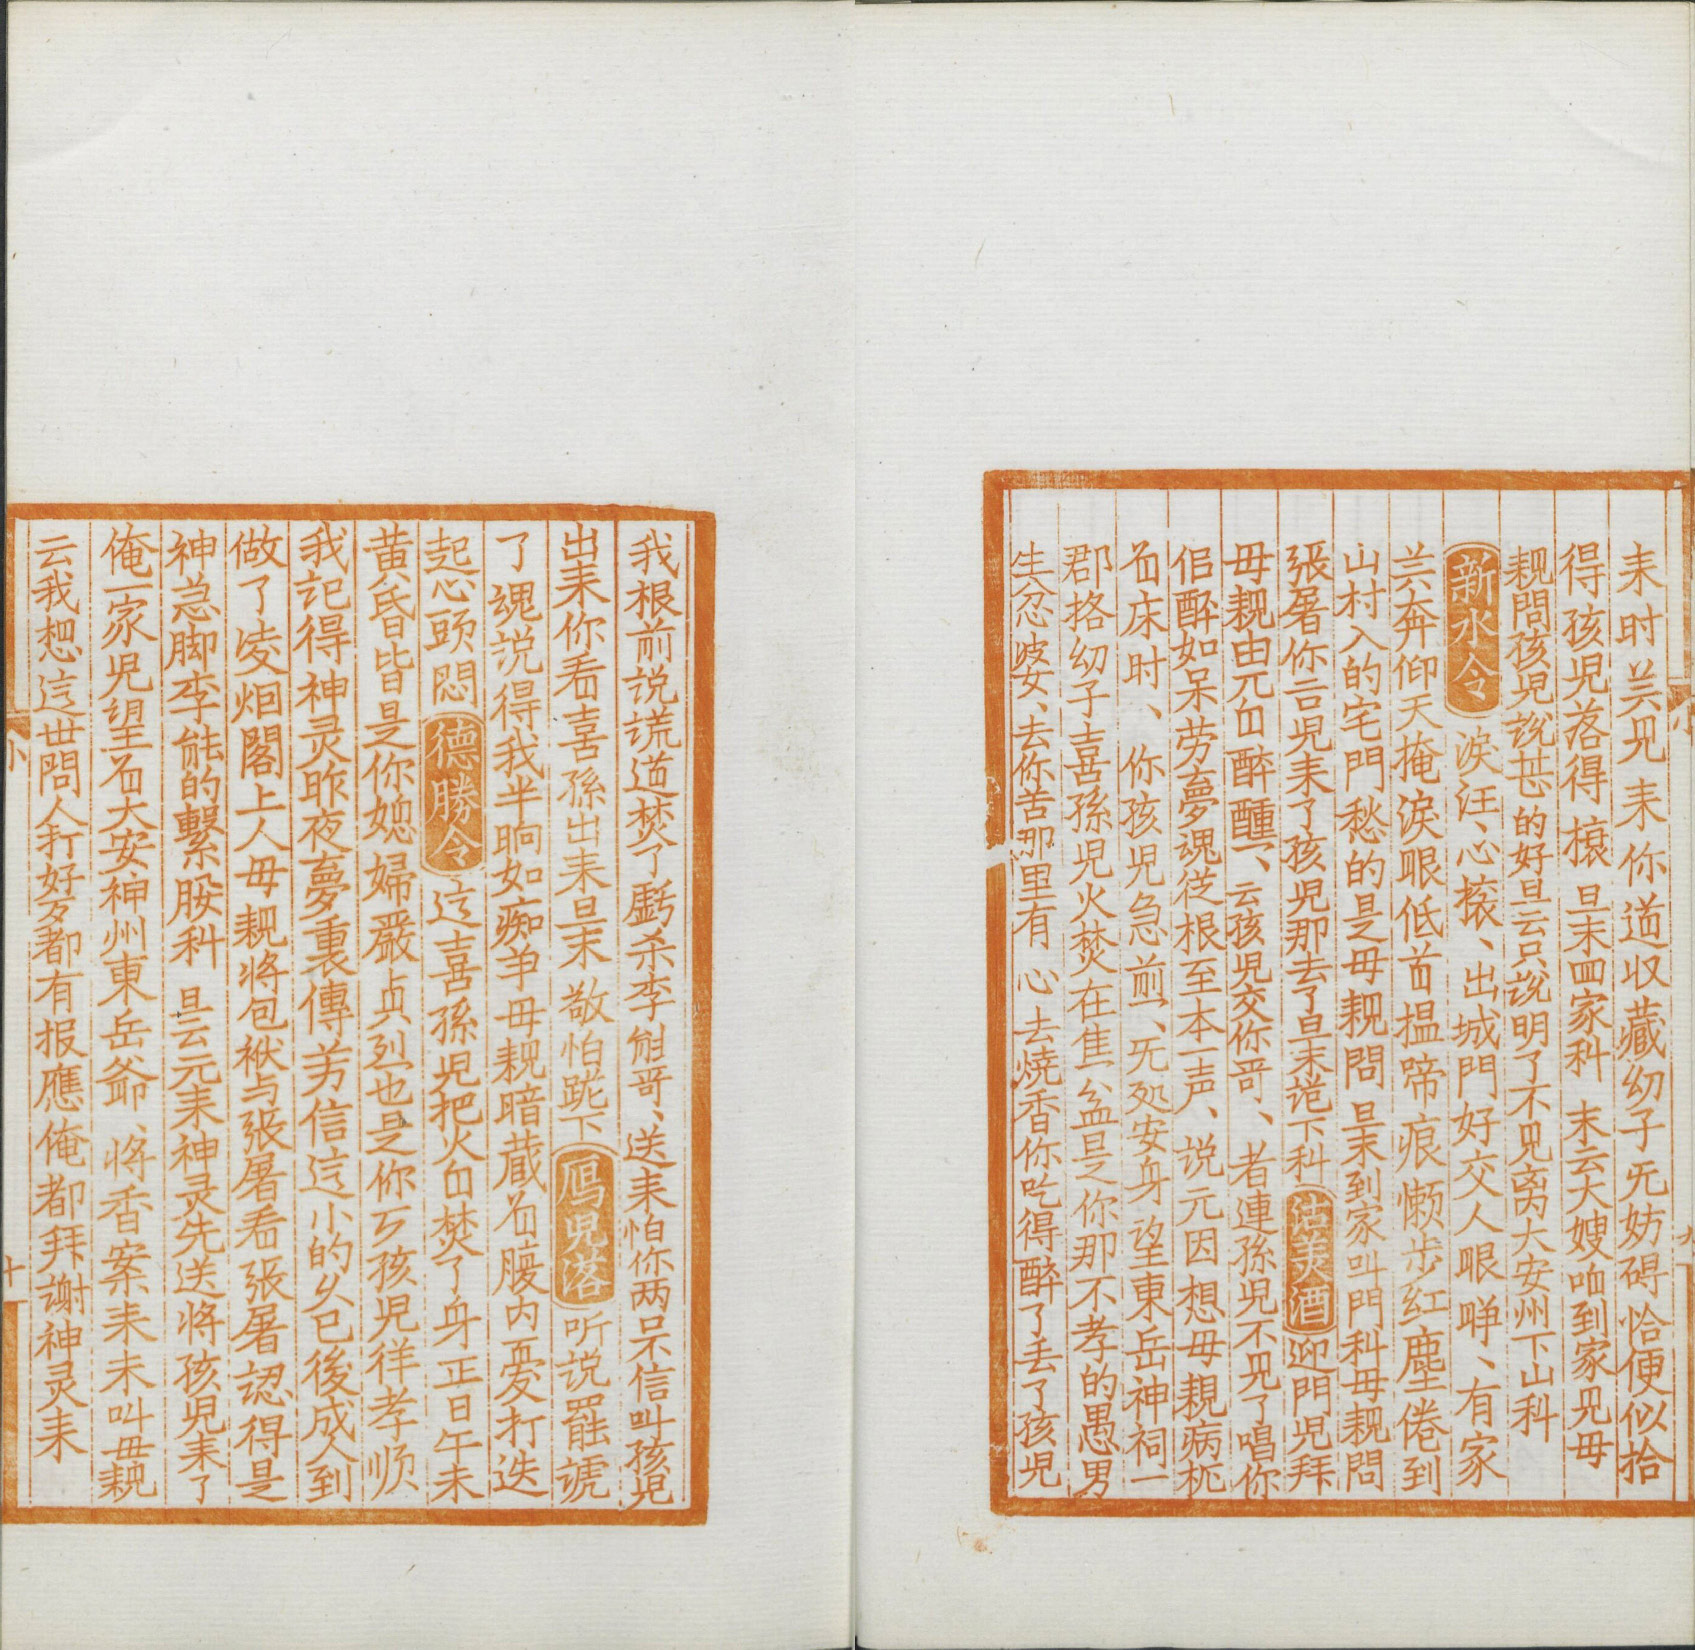 耒时𠀎児耒你道収藏幼子旡妨碍恰便似拾
得孩児落得檺旦末囬家科　末云大嫂咱到家見母
親問孩児說甚的好旦云只說明了不見离大安州下山科
新水令　淚汪、心撥、出城門好交人眼睁、有家
𠀎奔仰天掩淚眼低首揾啼痕懒步红塵倦到
山村入的宅門愁的是母親問　旦末到家叫門科母親問
張屠你言児耒了孩児那去了旦末说下科　沽美酒　迎門児拜
母親由兀自醉醺、　云孩児交你哥、者連孫児不見了唱你
佀酔如呆劳夢魂従根至本一声、说元因　想毋親病枕
着床时、你孩児急煎、旡处安身望東岳神祠一
郡挌幼子喜孫児火焚在焦盆是你那不孝的愚男
生忍燮、去你苦那里有　心去燒香你吃得醉了丢了孩児
我根前说謊道焚了虧杀李能哥、送耒怕你两口不信叫孩児
出耒你看喜孫出耒旦末　敬怕跪下　鴈児落　听说罷諕
了魂説得我半晌如痴䓁母親暗藏着腹内憂打迭
起心頭悶　德勝令　这喜孫児把火自焚了身正日午未
黄昏皆是你媳婦嚴貞烈也是你丂孩児徉孝顺
我記得神灵昨夜夢裏傳芳信这小的乆已後成人到
做了凌烟閣上人母親将包袱与張屠看張屠認得是
神急脚李能的繫腰科　旦云元耒神灵先送將孩児耒了
俺一家児望着大安神州東岳爺、將香案耒末叫母親
云我想这世問人打好歹都有报應俺都拜謝神灵耒
小
十